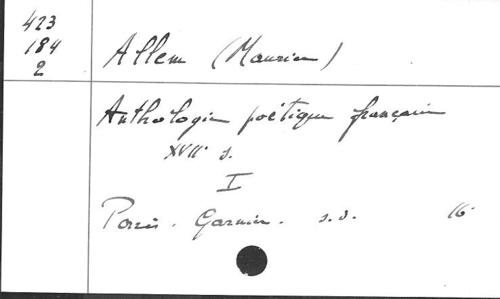 423
184
2
Allem (Maurice)
Anthologie poétique française
XVIIe s.
I
Paris. Garnier. s.d. 16°